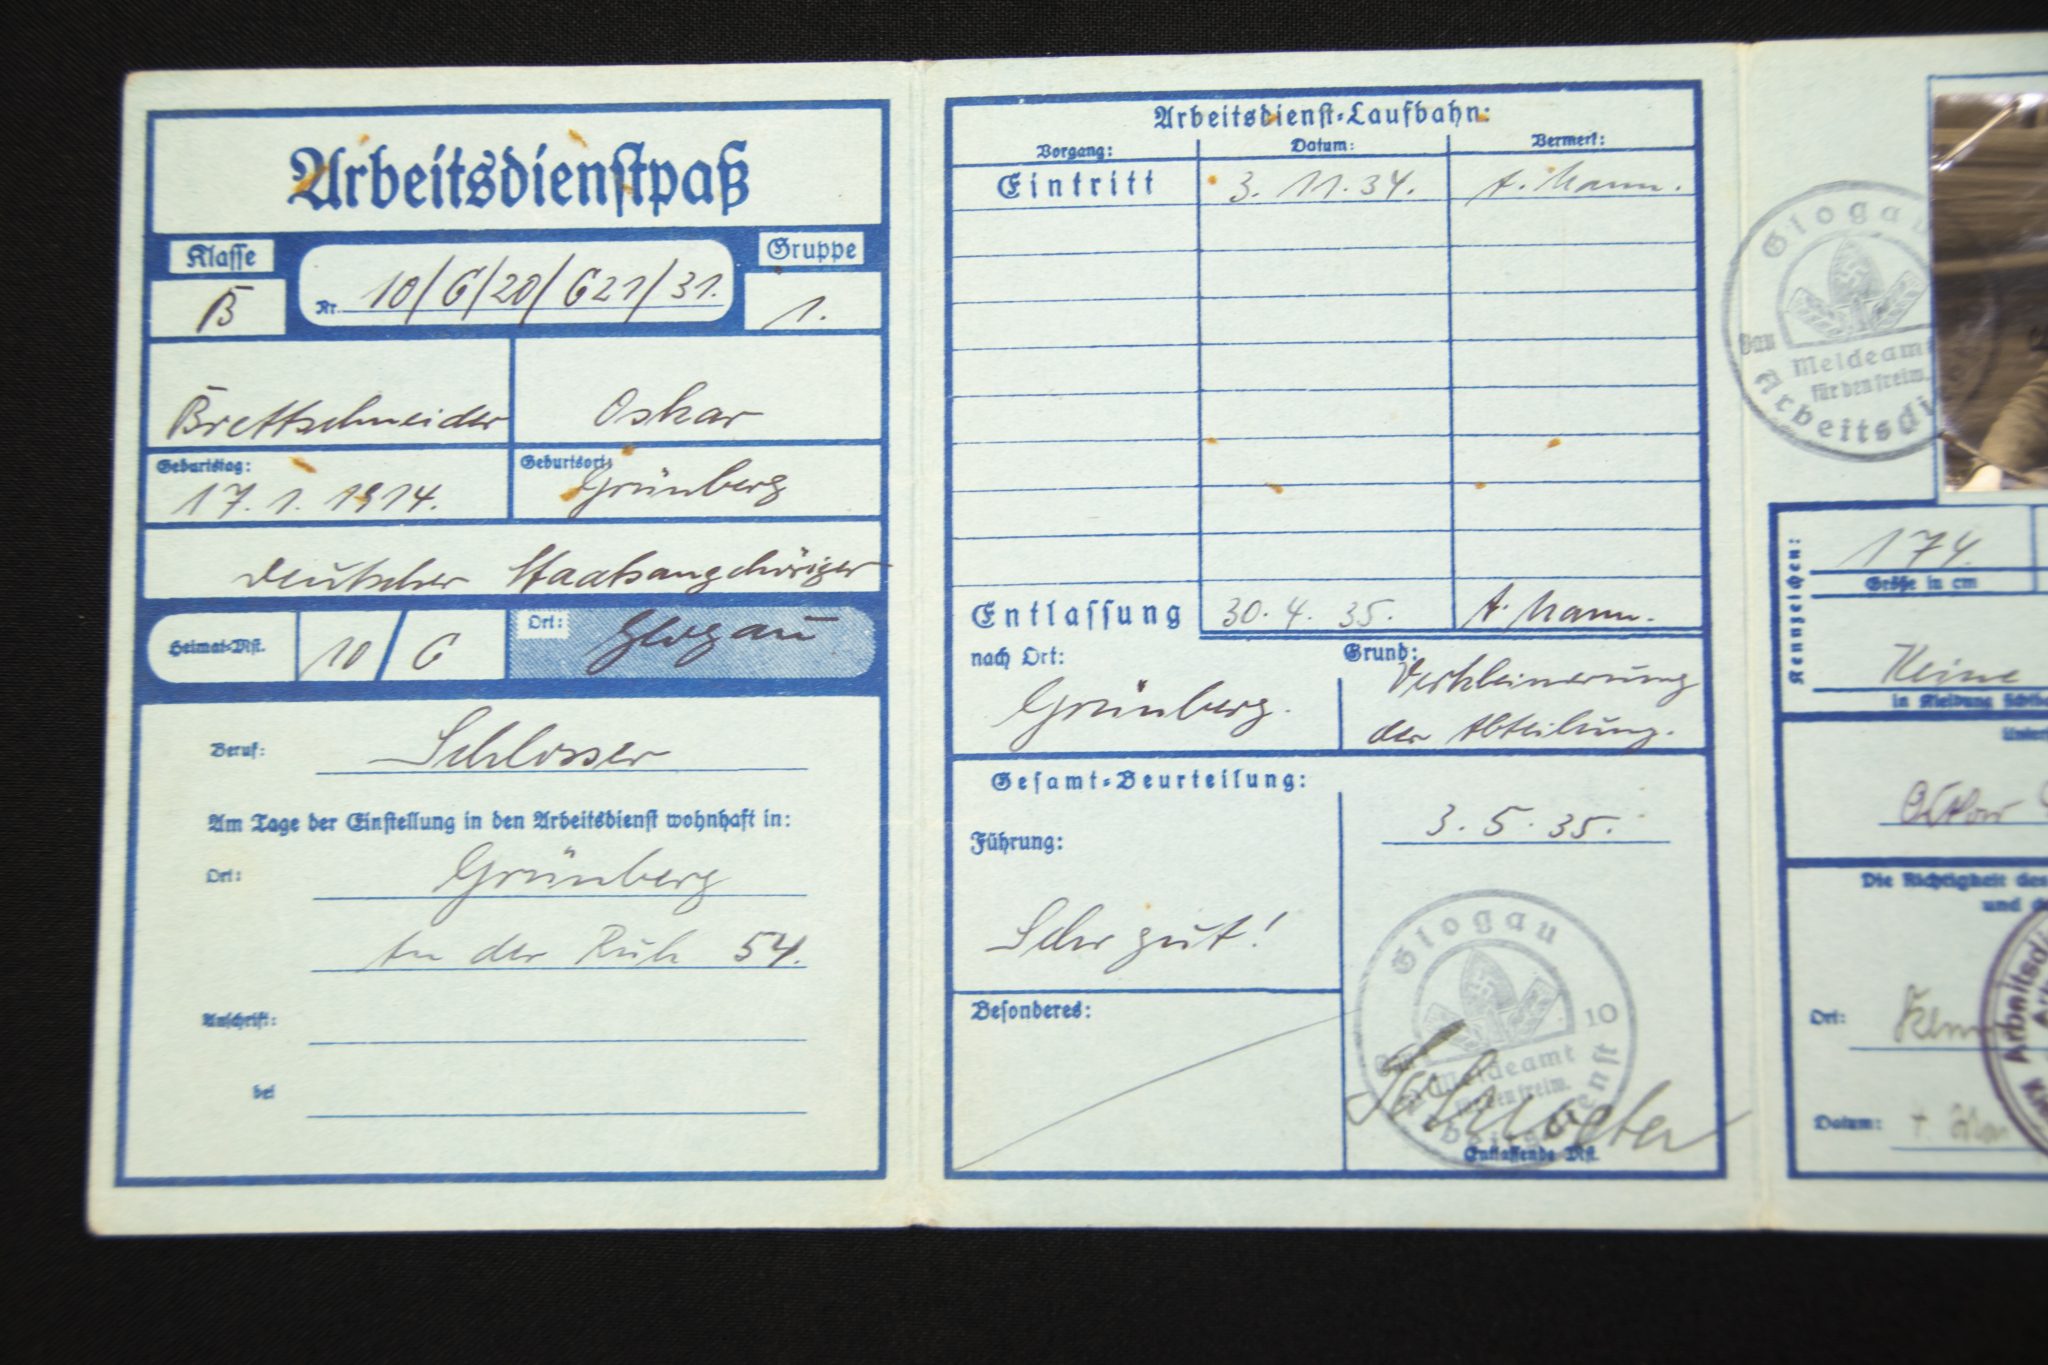 Arbeitsdienstpaß
Klasse
Gruppe
B
Nr. 10/G/20/G21/31.
1.
Brettschneider
Oskar
Geburtstag:
17.1.1914.
Geburtsort:
Grünberg
deutscher Staatsangehöriger
Heimat-Mst.
10 / G
Ort: Glogau
Beruf: Schlosser
Am Tage der Einstellung in den Arbeitsdienst wohnhaft in:
Ort: Grünberg
An der Ruh 54.
Anschrift:
bei
Arbeitsdienst-Laufbahn:
Vorgang:
Datum:
Vermerk:
Eintritt 3. 11. 34. A. Mann.
Entlassung 30. 4. 35. A. Mann.
nach Ort:
Grünberg.
Grund:
Verkleinerung
der Abteilung.
Gesamt-Beurteilung:
Führung:
Sehr gut!
3. 5. 35.
Besonderes:
Glogau
Gau 10
Meldeamt
für den freiw.
Arbeitsdienst
Entlassende Mst.
Glogau
Gau
Meldeamt
für den freiw.
Arbeitsdi
Kennzeichen:
174.
Größe in cm
Keine
in Kleidung sichtb
Unter
Die Richtigkeit des
und d
Arbeitsdi
Ort:
Datum: